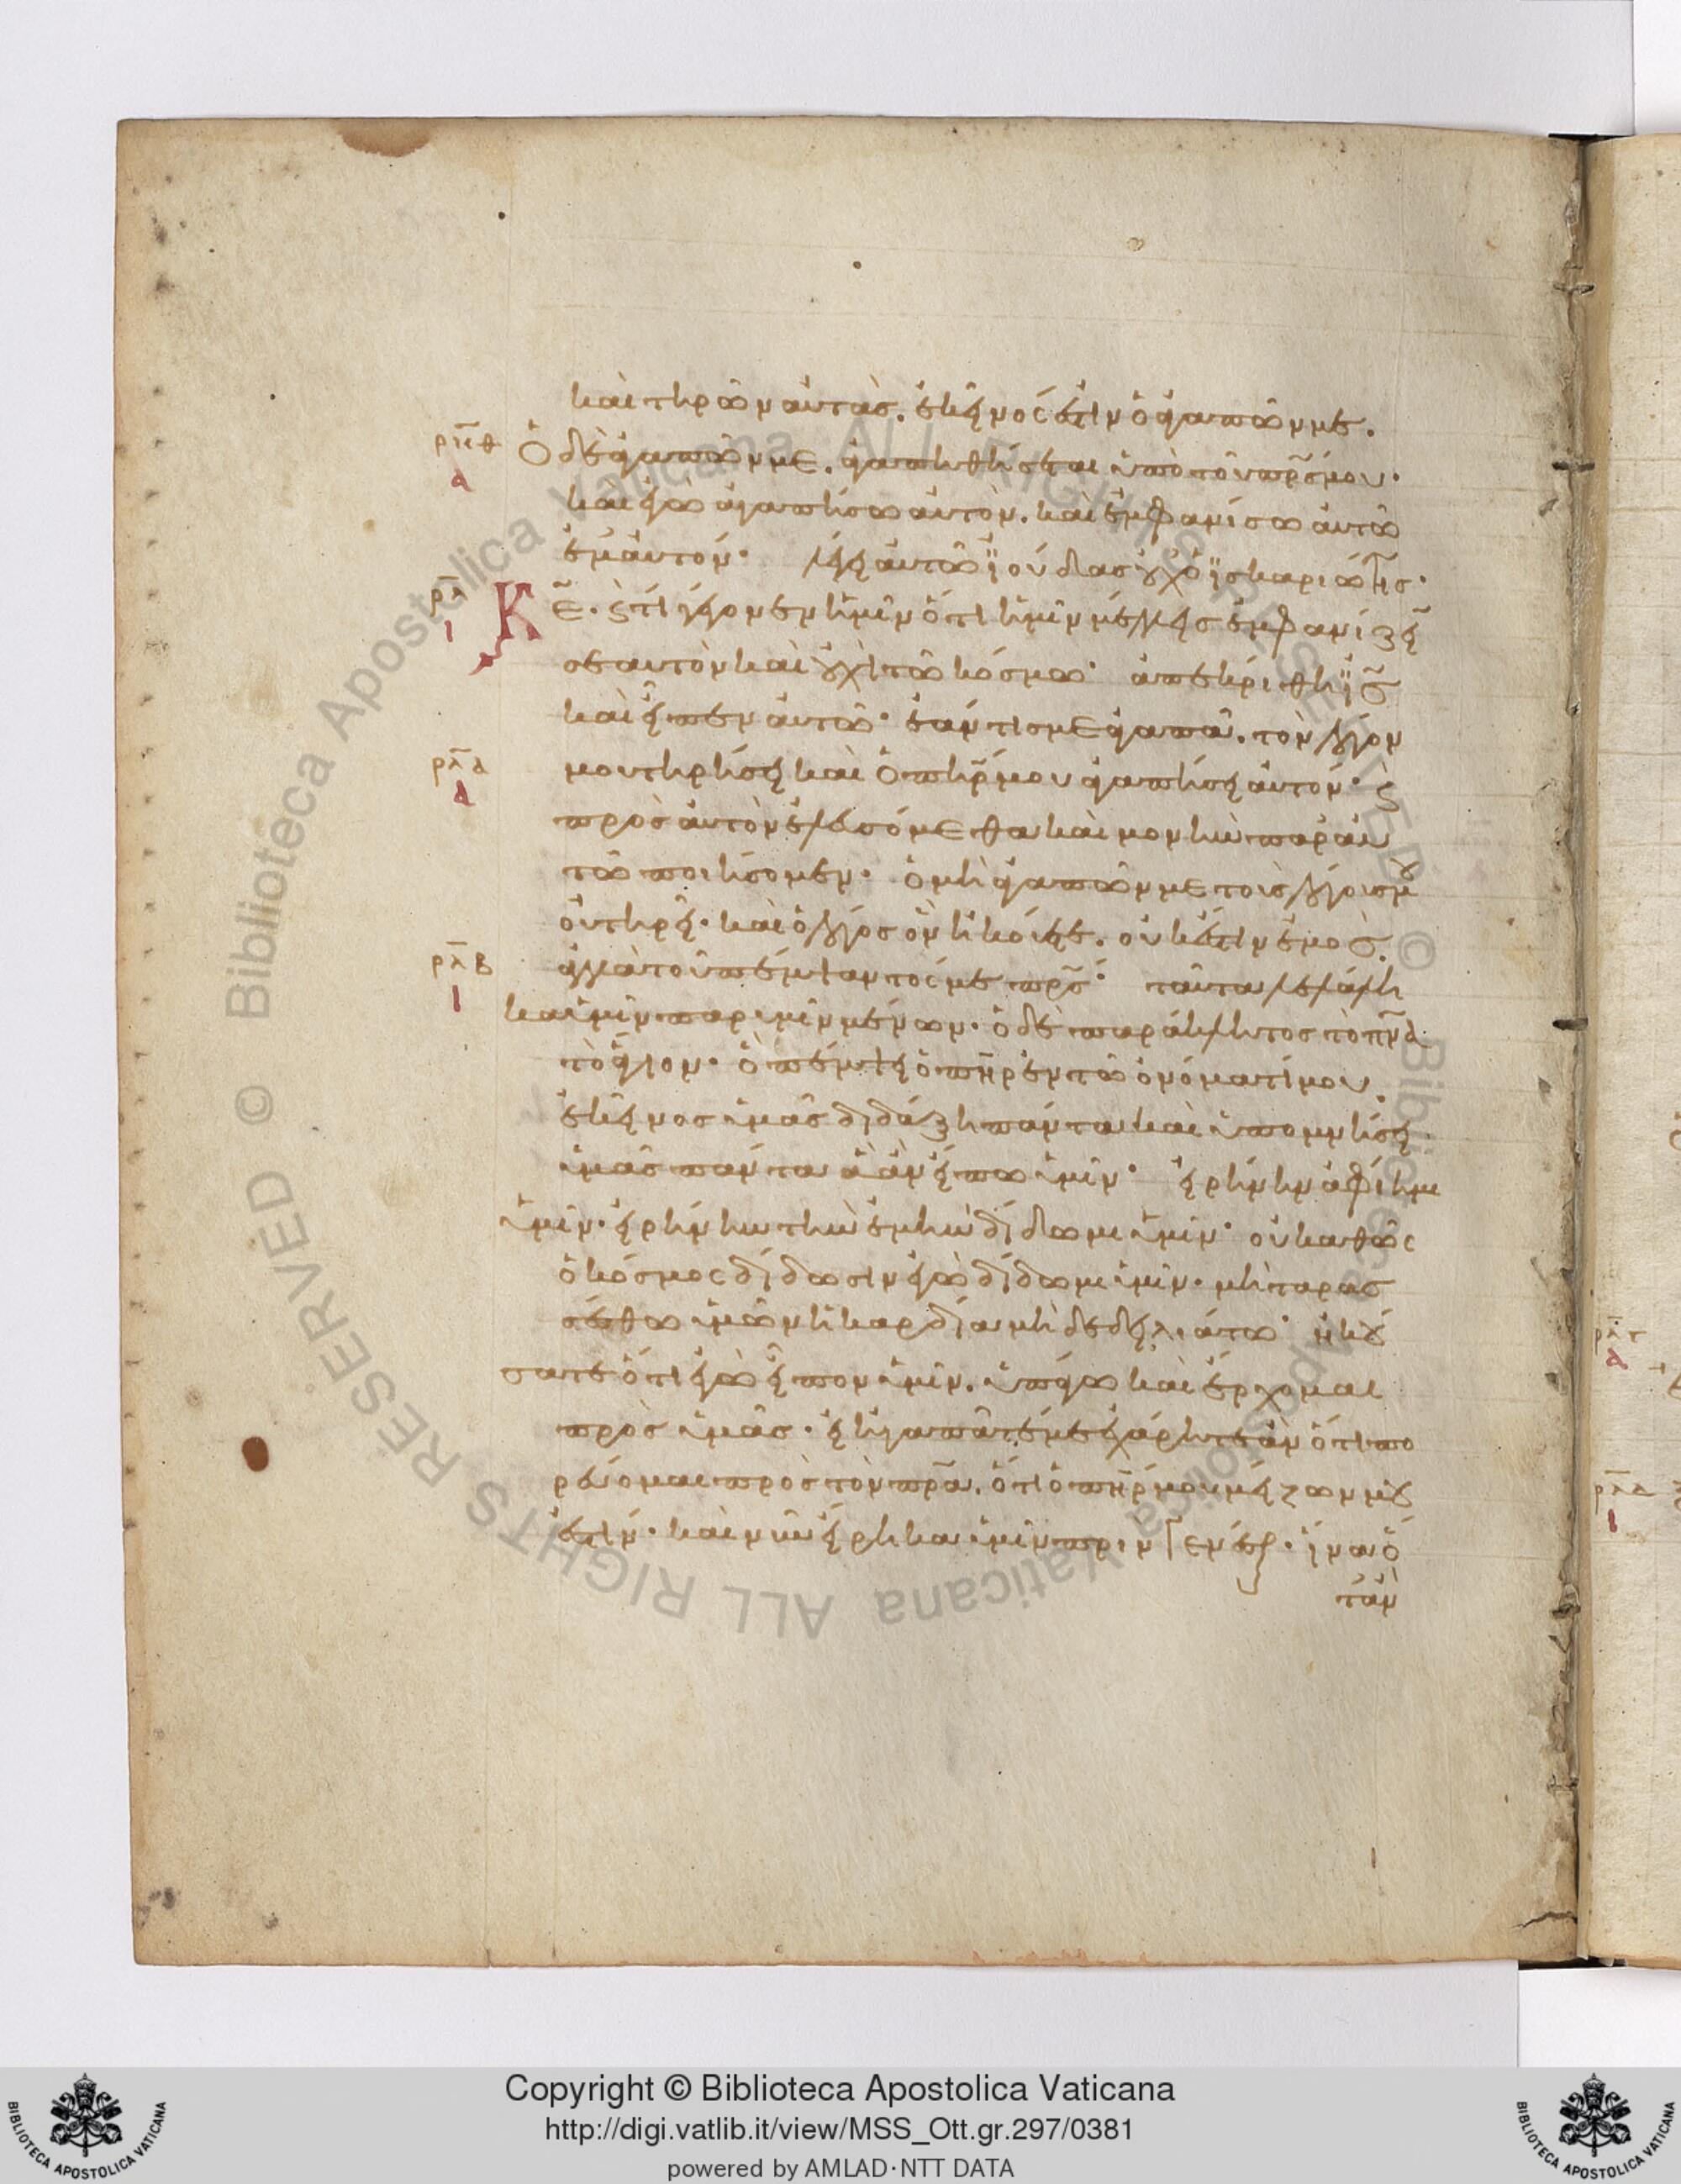 καὶ τηρῶν αὐτὰσ. ἐκεῖνός ἐστιν ὁ ἀγαπῶν με.
ρκθ Ὁ δὲ ἀγαπῶν με. ἀγαπηθήσεται ὑπὸ τοῦ πρ̅σ μου·
α
καὶ ἐγὼ ἀγαπήσω αὐτὸν. καὶ ἐμφανίσω αὐτῶ
ἐμαυτόν· λέγει αὐτῶ ϊούδασ οὐχ ὁ ϊσκαριώτησ·
ρλ
ι
Κε̅. ϛ τί γέγονεν ἡμῖν ὅτι ἡμῖν μέλλεισ ἐμφανίζειν
σεαυτὸν καὶ οὐχὶ τῶ κόσμω· ἀπεκρίθη ϊσ̅
καὶ εἶπεν αὐτῶ· ἐάν τισ με ἀγαπᾶ. τὸν λόγον
ρλα μου τηρήσει καὶ ὁ πηρ̅ μου ἀγαπήσει αὐτόν· ϛ
α
πρὸσ αὐτὸν ἐλευσόμεθα καὶ μονὴν παρ αὐ
τῶ ποιήσομεν· ὁ μὴ ἀγαπῶν με τοὺσ λόγουσ μου
οὐ τηρεῖ· καὶ ὁ λόγοσ ὃν ἠκούετε. οὐκ ἔστιν ἐμοσ.
ρλβ ἀλλὰ τοῦ πέμψαντός με πρ̅σ· ταῦτα λελάλη
ι
κα ὑμῖν παρ ὑμῖν μένων. ὁ δὲ παράκλητοσ τὸ πν̅α
τὸ ἅγιον. ὃ πέμψει ὁ πη̅ρ ἐν τῶ ὀνόματί μου.
ἐκεῖνοσ ὑμᾶσ διδάξη πάντα καὶ ὑπομνήσει
ὑμᾶσ πάντα ἃ ἂν εἴπω ὑμῖν· εἰρήνην ἀφίημι
ὑμῖν· εἰρήνην τὴν ἐμὴν δίδωμι ὑμῖν· οὐ καθὼς
ὁ κόσμος δίδωσιν ἐγὼ δίδωμι ὑμῖν. μὴ ταρασ
σέσθω ὑμῶν ἡ καρδία μὴ δὲ δειλιάτω· ἠκού
σατε ὅτι ἐγὼ εἶπον ὑμῖν. ὑπάγω καὶ ἔρχομαι
πρὸσ ὑμᾶσ· εἰ ἠγαπᾶτέ με ἐχάρητε ἂν ὅτι πο
ρεύομαι πρὸσ τὸν πρ̅α. ὅτι ὁ πη̅ρ μου μείζων μου
ἐστίν· καὶ νῦν εἴρηκα ὑμῖν πριν γενέσθαι. ἵνα ὅ
τὰν
Copyright © Biblioteca Apostolica Vaticana
http://digi.vatlib.it/view/MSS_Ott.gr.297/0381
powered by AMLAD·NTT DATA